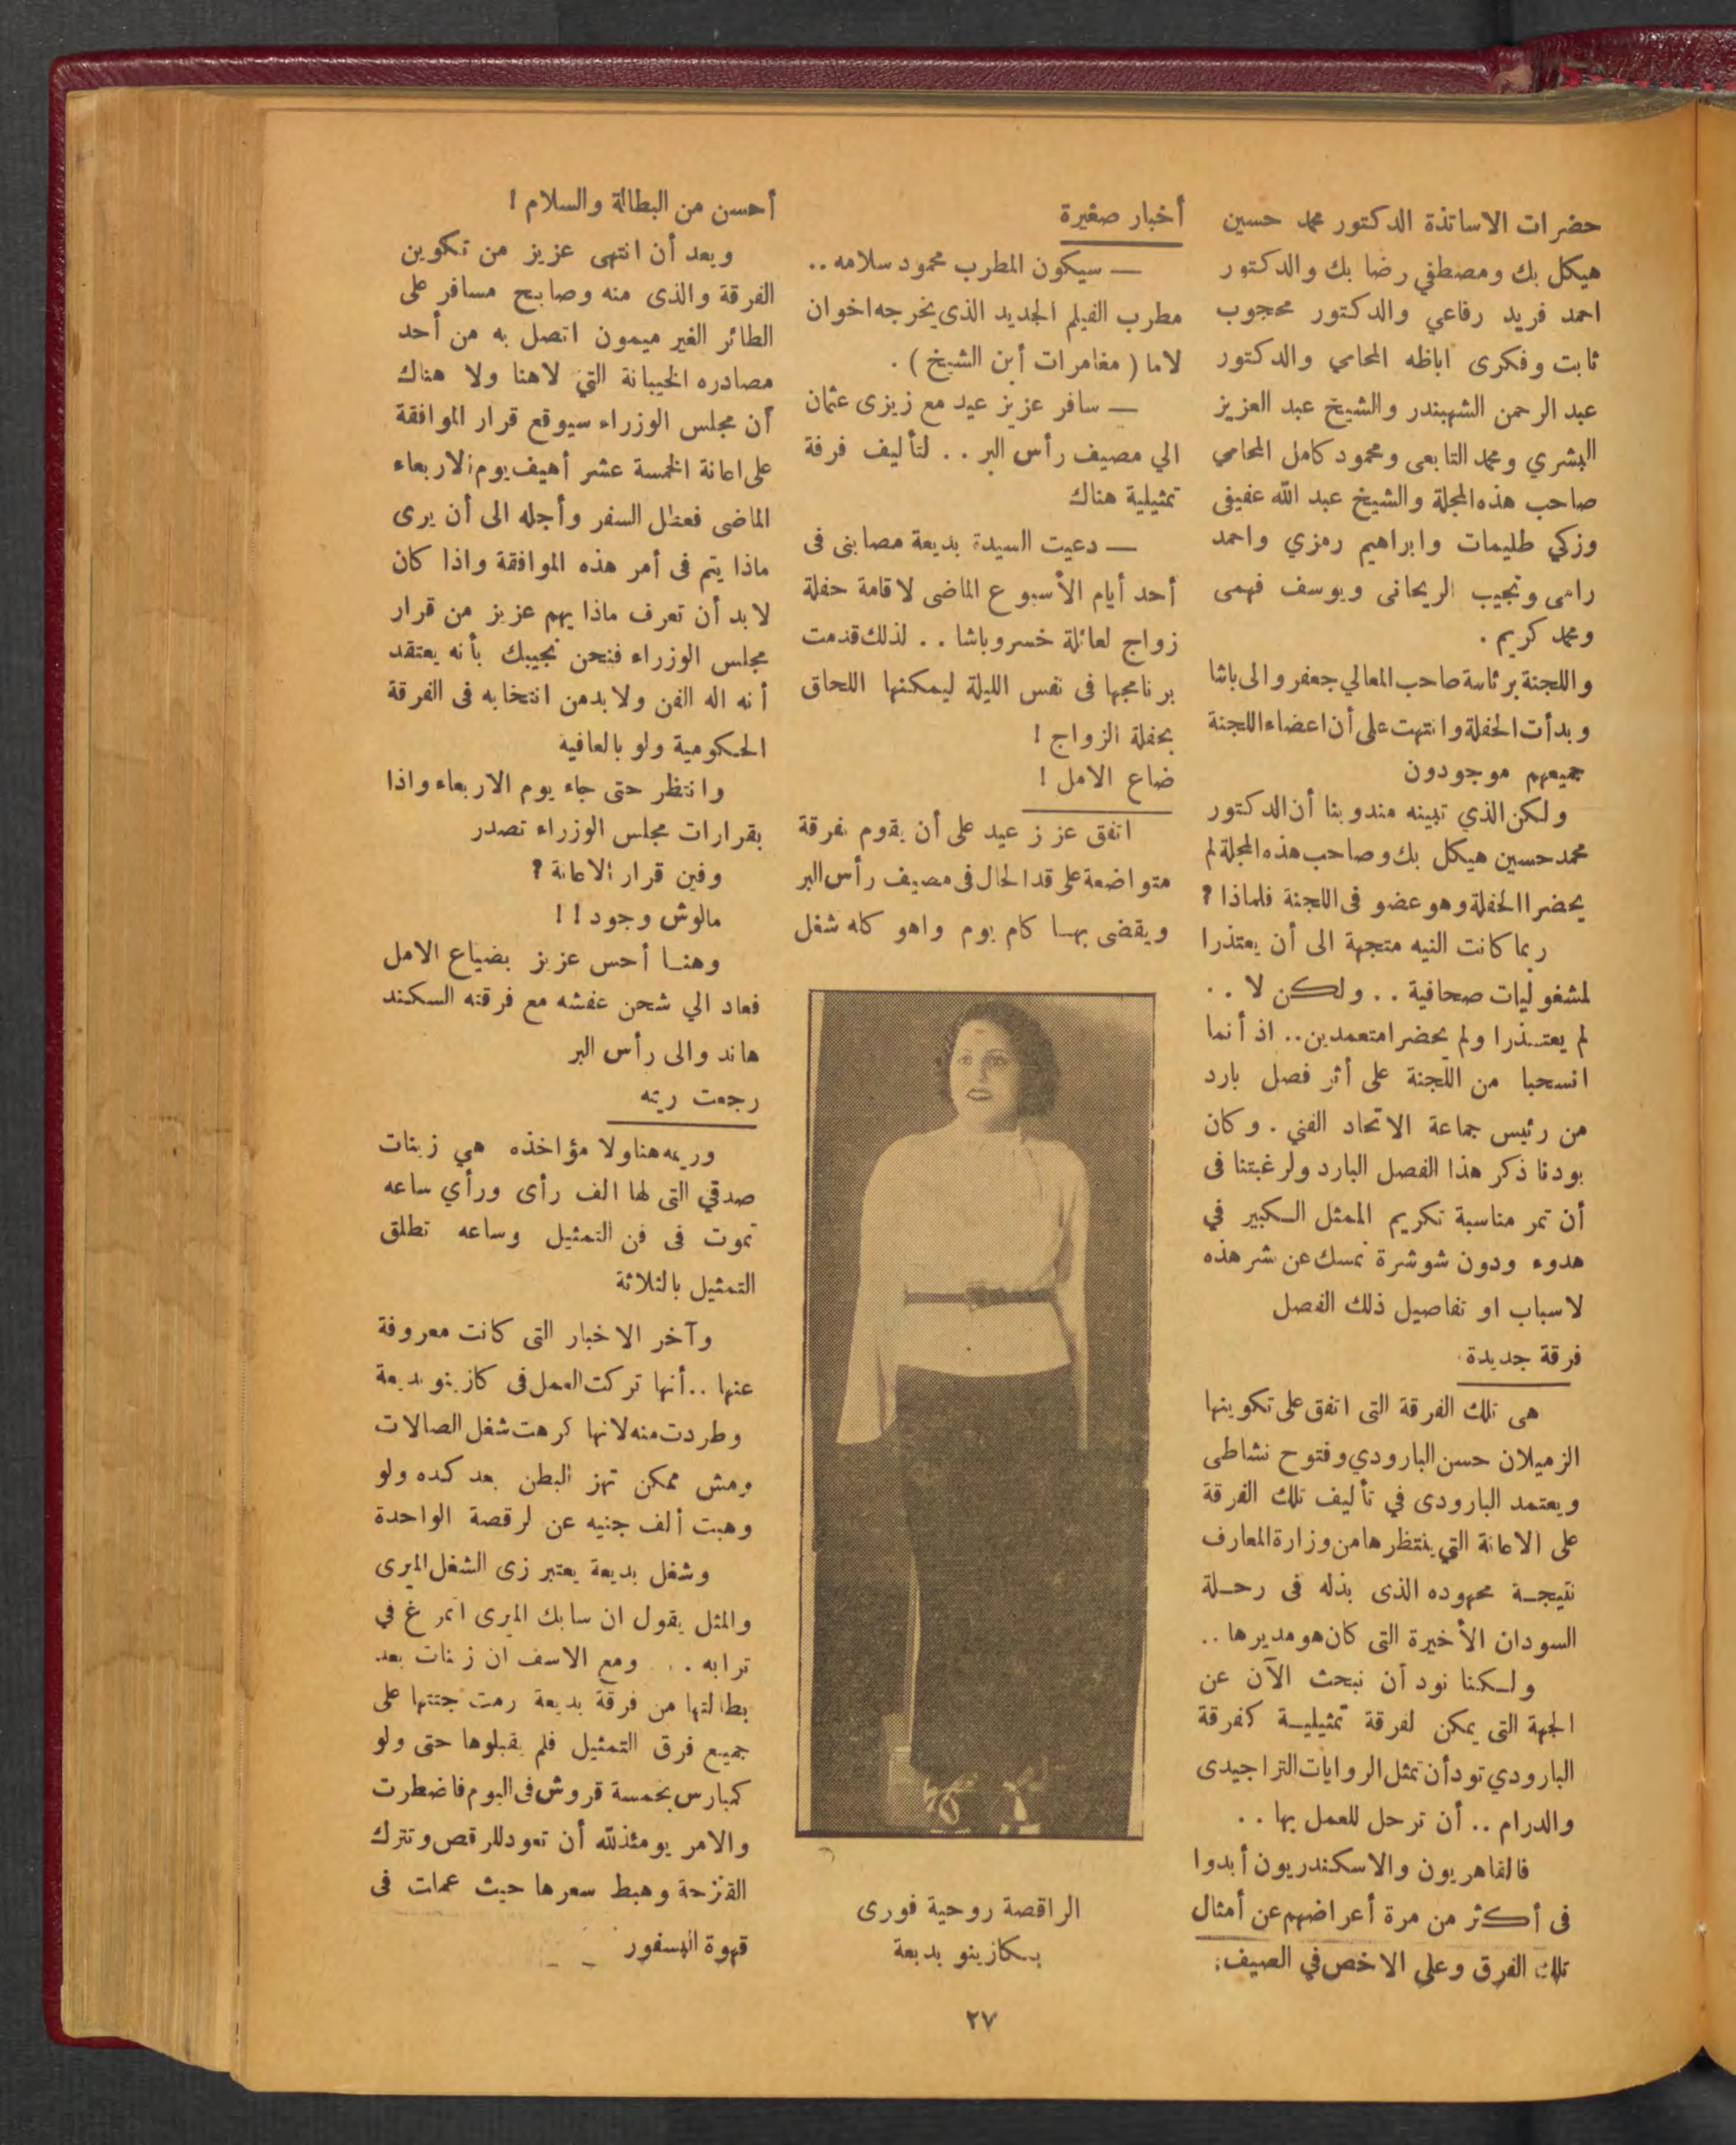 حضرات الاساتذة الدكتور محمد حسين
هيكل بك ومصطفي رضا بك والدكتور
احمد فريد رفاعي والدكتور محجوب
ثابت وفكرى اباظه المحامي والدكتور
عبد الرحمن الشهبندر والشيخ عبد العزيز
البشري ومحمد التابعى ومحمود كامل المحامي
صاحب هذه المجلة والشيخ عبد الله عفيفى
وزكي طليمات وابراهيم رمزي واحمد
رامى ونجيب الريحانى ويوسف فهمى
ومحمد كريم .
واللجنة برئاسة صاحب المعالي جعفر والى باشا
وبدأت الحفلة وانتهت على أن اعضاء اللجنة
جميعهم موجودون
ولكن الذي تبينه مندوبنا أن الدكتور
محمد حسين هيكل بك وصاحب هذه المجلة لم
يحضرا الحفلة وهو عضو فى اللجنة فلماذا ؟
ربما كانت النيه متجهة الى أن يعتذرا
لمشغوليات صحافية . . ولكن لا . .
لم يعتذرا ولم يحضرا متعمدين .. اذ أنما
انسحبا من اللجنة على أثر فصل بارد
من رئيس جماعة الاتحاد الفني . وكان
بودنا ذكر هذا الفصل البارد ولرغبتنا فى
أن تمر مناسبة تكريم الممثل الكبير في
هدوء ودون شوشرة نمسك عن نشر هذه
لاسباب او تفاصيل ذلك الفصل
فرقة جديدة
هى تلك الفرقة التى اتفق على تكوينها
الزميلان حسن البارودي وفتوح نشاطى
ويعتمد البارودى في تأليف تلك الفرقة
على الاعانة التي ينتظرها من وزارة المعارف
نتيجة مجهوده الذى بذله فى رحلة
السودان الأخيرة التى كان هو مديرها ..
ولكنا نود أن نبحث الآن عن
الجهة التى يمكن لفرقة تمثيلية كفرقة
البارودي تود أن تمثل الروايات التراجيدى
والدرام .. أن ترحل للعمل بها . .
فالقاهريون والاسكندريون أبدوا
فى أكثر من مرة أعراضهم عن أمثال
تلك الفرق وعلى الاخص في الصيف .
أخبار صغيرة
— سيكون المطرب محمود سلامه ..
مطرب الفيلم الجديد الذى يخرجه اخوان
لاما ( مغامرات أبن الشيخ ) .
— سافر عزيز عيد مع زيزى عثمان
الي مصيف رأس البر . . لتأليف فرفة
تمثيلية هناك
— دعيت السيدة بديعة مصابنى فى
أحد أيام الأسبوع الماضى لاقامة حفلة
زواج لعائلة خسرو باشا . . لذلك قدمت
برنامجها فى نفس الليلة ليمكنها اللحاق
بحفلة الزواج !
ضاع الامل !
اتفق عزيز عيد على أن يقوم بفرقة
متواضعة على قد الحال فى مصيف رأس البر
ويقضى بها كام يوم واهو كله شغل
الراقصة روحية فورى
بكازينو بديعة
أحسن من البطالة والسلام !
وبعد أن انتهى عزيز من تكوين
الفرقة والذى منه وصابح مسافر على
الطائر الغير ميمون اتصل به من أحد
مصادره الخيبانة التي لاهنا ولا هناك
أن مجلس الوزراء سيوقع قرار الموافقة
على اعانة الخمسة عشر أهيف يوم الاربعاء
الماضى فعطل السفر وأجله الى أن يرى
ماذا يتم فى أمر هذه الموافقة واذا كان
لابد أن تعرف ماذا يهم عزيز من قرار
مجلس الوزراء فنحن نجيبك بأنه يعتقد
أنه اله الفن ولابد من انتخابه فى الفرقة
الحكومية ولو بالعافية
وانتظر حتى جاء يوم الاربعاء واذا
بقرارات مجلس الوزراء تصدر
وفين قرار الاعانة ؟
مالوش وجود ! !
وهنا أحس عزيز بضياع الامل
فعاد الي شحن عفشه مع فرقته السكند
هاند والى رأس البر
رجعت ريمه
وريمه هنا ولا مؤاخذه هي زينات
صدقي التى لها الف رأى ورأي ساعه
تموت فى فن التمثيل وساعه تطلق
التمثيل بالثلاثة
وآخر الاخبار التى كانت معروفة
عنها .. أنها تركت العمل فى كازينو بديعة
وطردت منه لانها كرهت شغل الصالات
ومش ممكن تهز البطن بعد كده ولو
وهبت ألف جنيه عن لرقصة الواحدة
وشغل بديعة يعتبر زى الشغل الميرى
والمثل يقول ان سابك الميرى اتمرغ في
ترابه . . . ومع الاسف ان زينات بعد
بطالتها من فرقة بديعة رمت جتتها على
جميع فرق التمثيل فلم يقبلوها حتى ولو
كمبارس بخمسة قروش فى اليوم فاضطرت
والامر يومئذ لله أن تعود للرقص وتترك
القنزحة وهبط سعرها حيث عملت فى
قهوة البسفور
٢٧